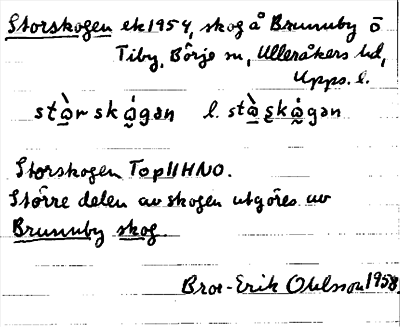 Storskogen ek 1954, skog å Brunnby o
Tiby, Börje sn, Ulleråkers hd,
Upps. l.
stɷ̀r skɷ́gan l. stɷ̀ skɷ́gan
Storskogen Top 11HNO.
Större delen av skogen utgöres av
Brunnby skog.
Bror-Erik Ohlsson 1958.